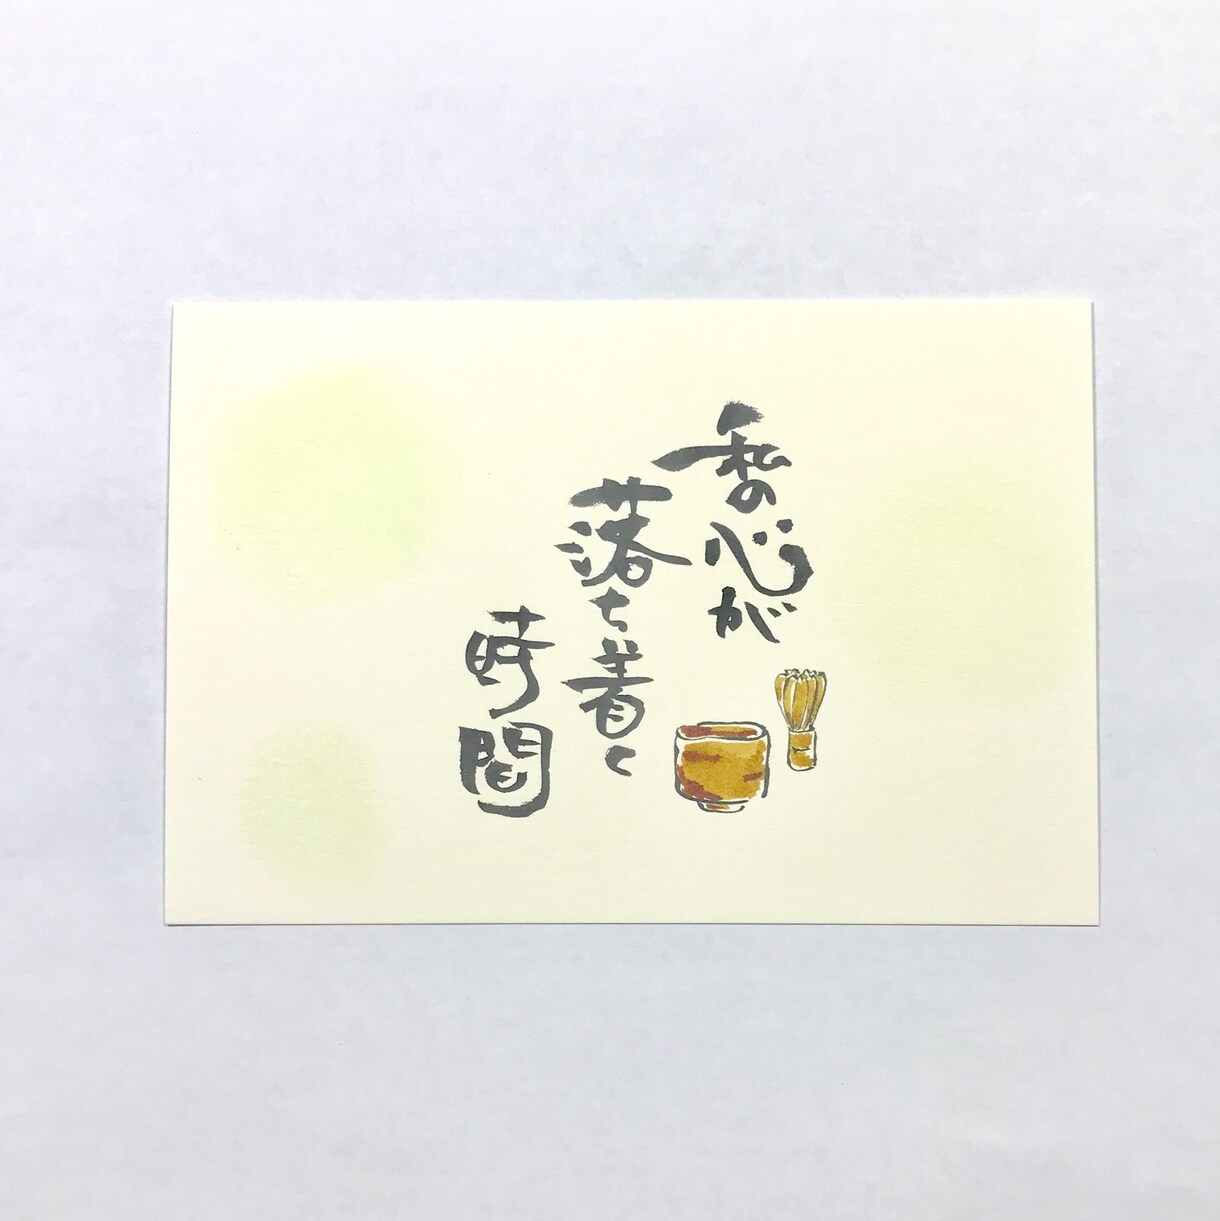 私の心が
落ち着く
時間